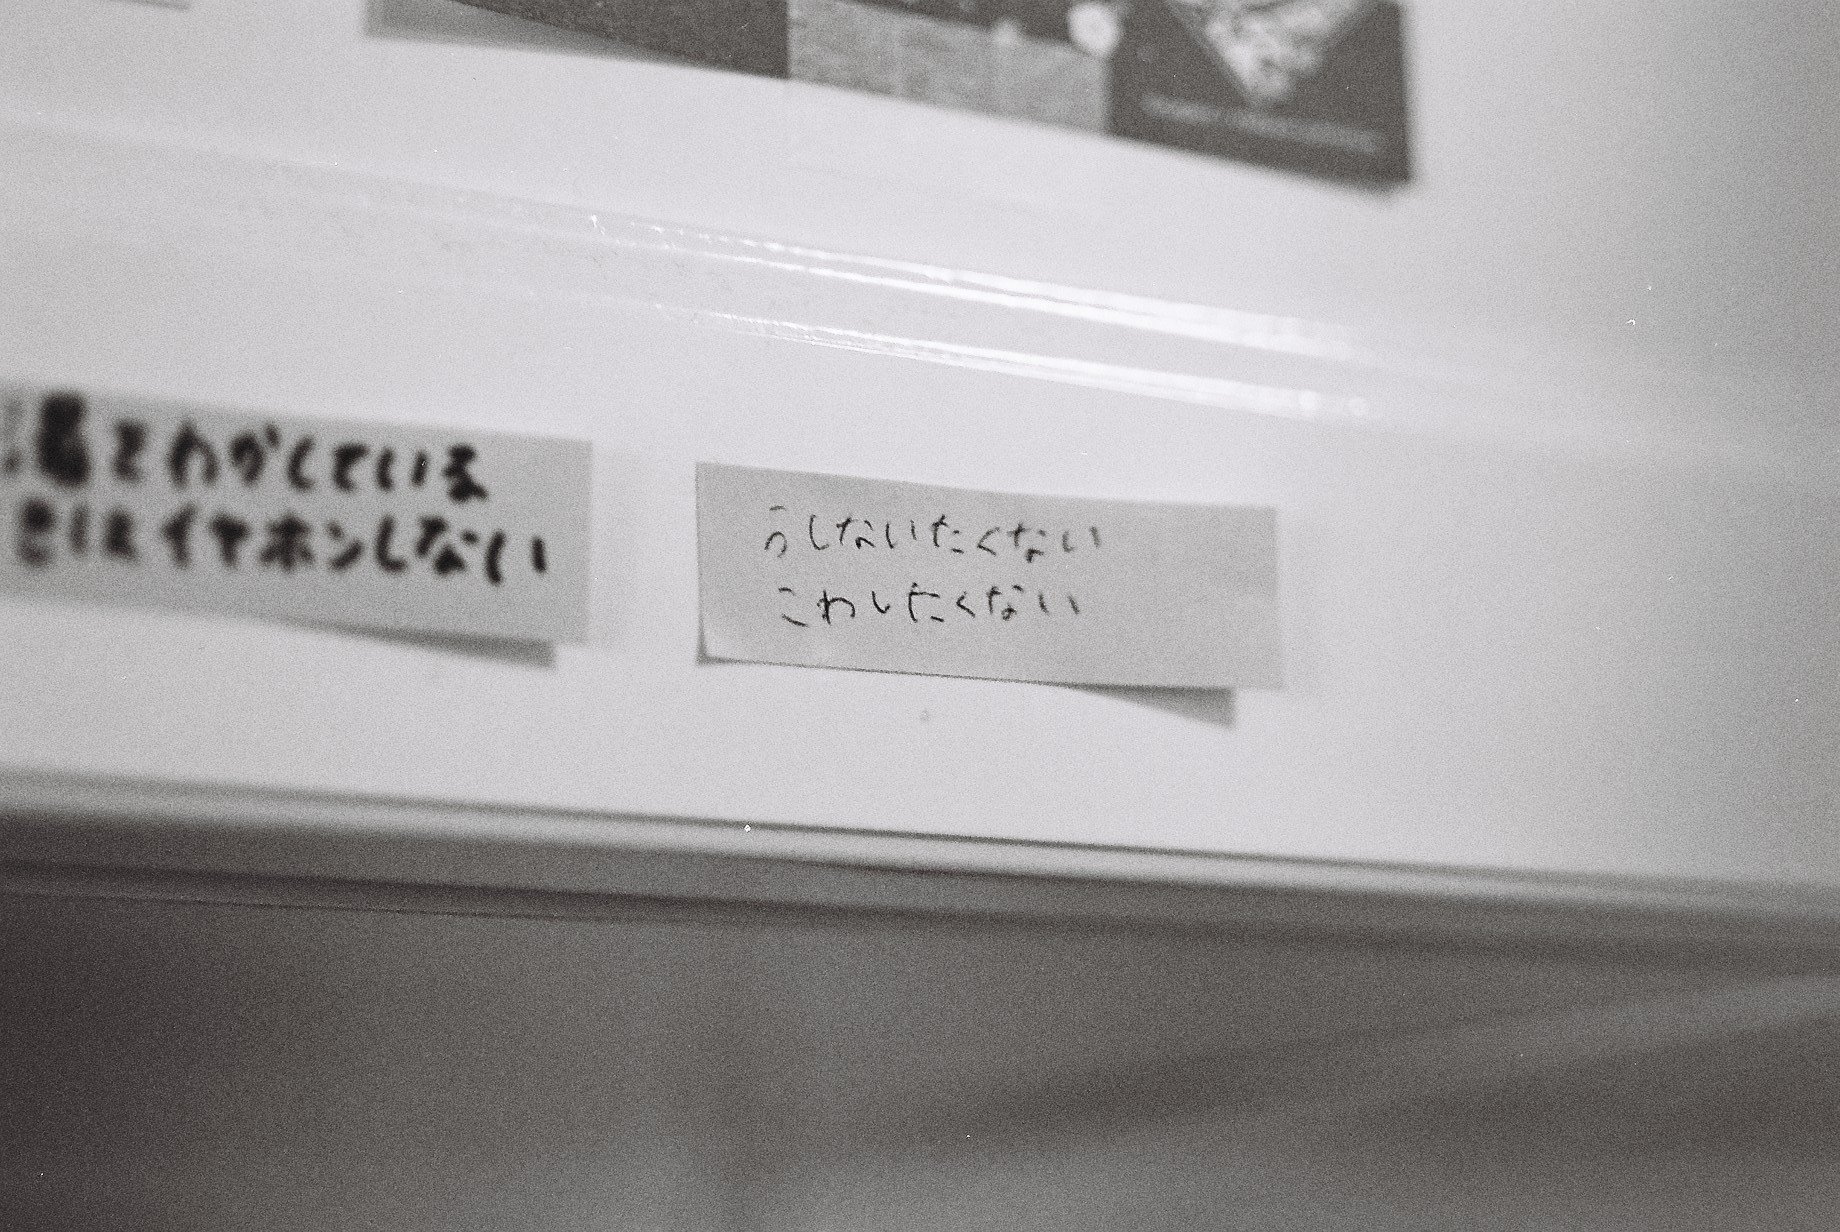 湯をわかしている
ときはイヤホンしない
うしないたくない
こわしたくない